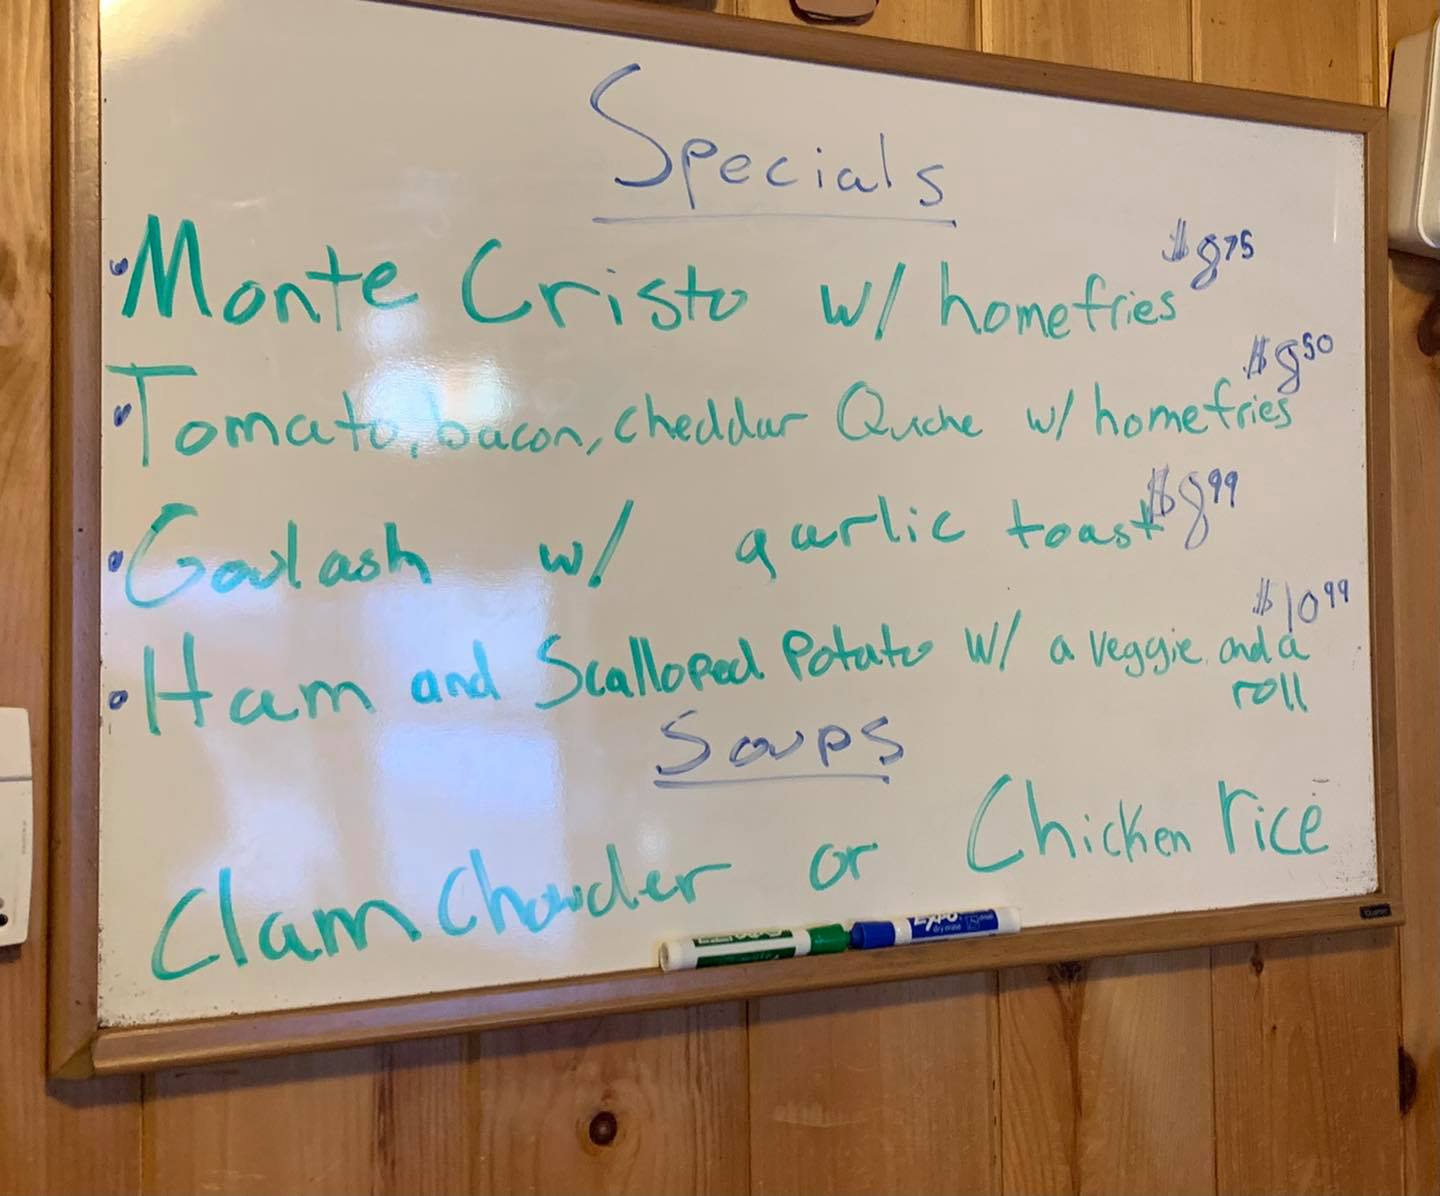 Specials
• Monte Cristo w/ homefries $8.75
• Tomato, bacon, cheddar Quiche w/ homefries $8.50
• Goulash w/ garlic toast $8.99
• Ham and Scalloped Potato w/ a veggie and a $10.99
roll
Soups
Clam Chowder or Chicken rice
EXPO